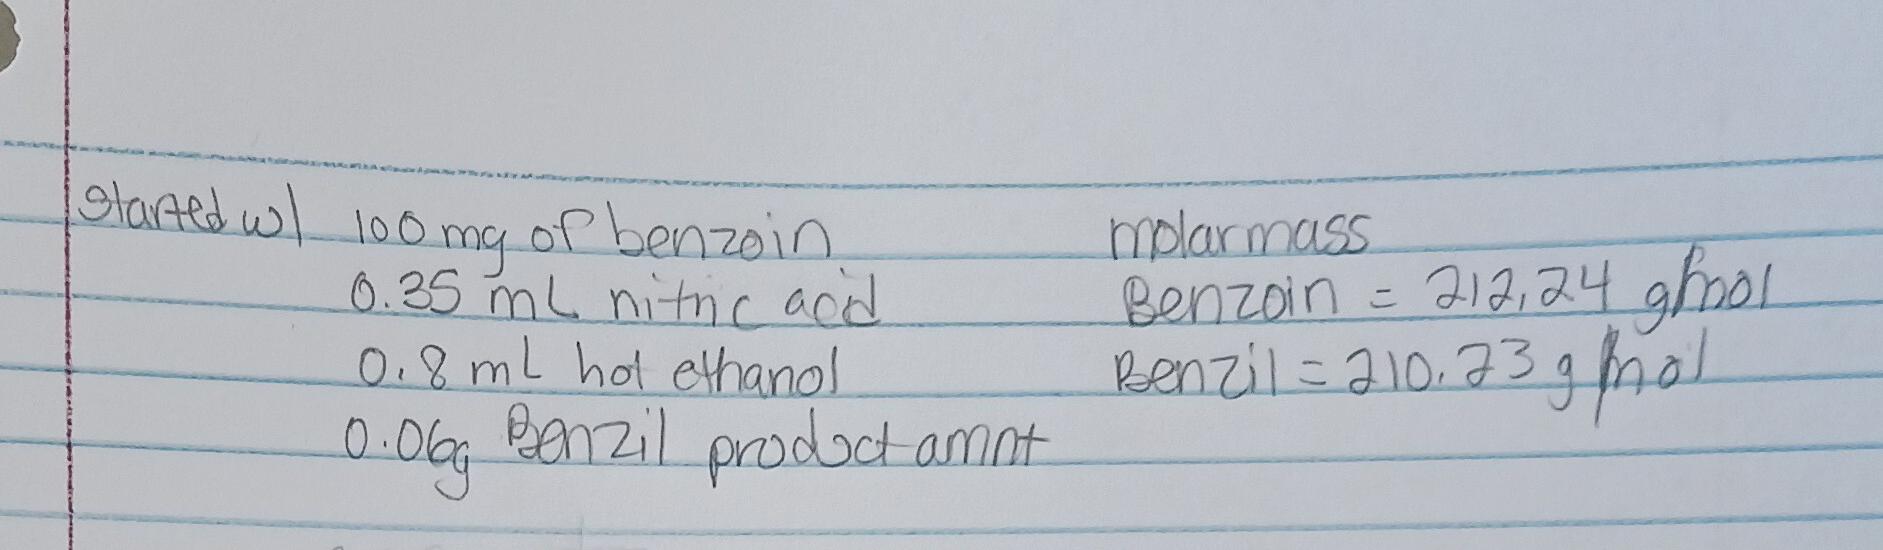 Started w/ 100 mg of benzoin molarmass
0.35 mL nitric acid Benzoin = 212.24 g/mol
0.8 mL hot ethanol Benzil = 210.23 g/mol
0.06g Benzil product amnt